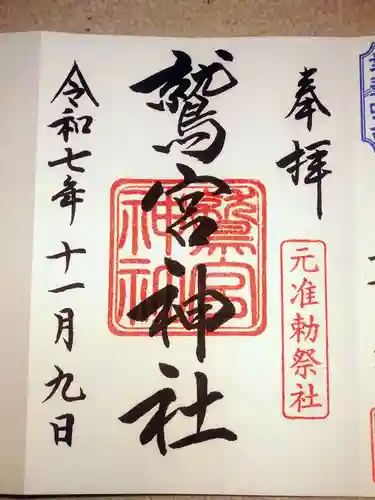 奉拝
元准勅祭社
鷲宮神社
鷲宮
神社
令和七年 十一月 九日